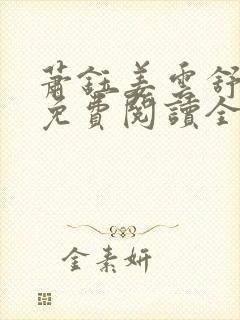 蕭鈺姜雲舒
免費閱讀全
金素妍